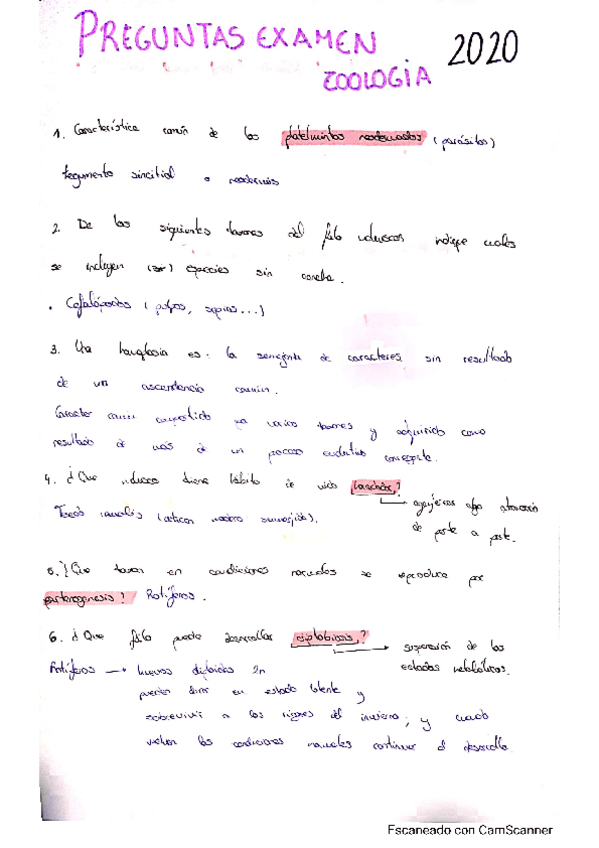 PREGUNTAS EXAMEN 2020
ZOOLOGIA
1. Característica común de los platelmintos neodermados (parásitos)
tegumento sincitial o neodermis
2. De los siguientes taxones del filo moluscos indique cuales
se incluyen especies sin concha.
• Cefalópodos (pulpos, sepias...)
3. Una homoplasia es: la semejanza de caracteres sin resultado
de un ascendencia común.
Caracter común compartido por varios taxones y adquirido como
resultado de más de un proceso evolutivo
4. ¿Que molusco tiene hábito de vida
agujerea algo
de parte a parte.
Teredo navalis
5. ¿Que taxon en condiciones normales se reproduce por
partenogenesis? Rotíferos.
6. ¿Que filo puede desarrollar criptobiosis? → suspensión de los
Rotíferos → huevos diploides 2n estados metabólicos.
pueden durar en estado latente y
sobrevivir a los rigores del invierno; y cuando
vuelven las condiciones normales continuar el desarrollo
Escaneado con CamScanner